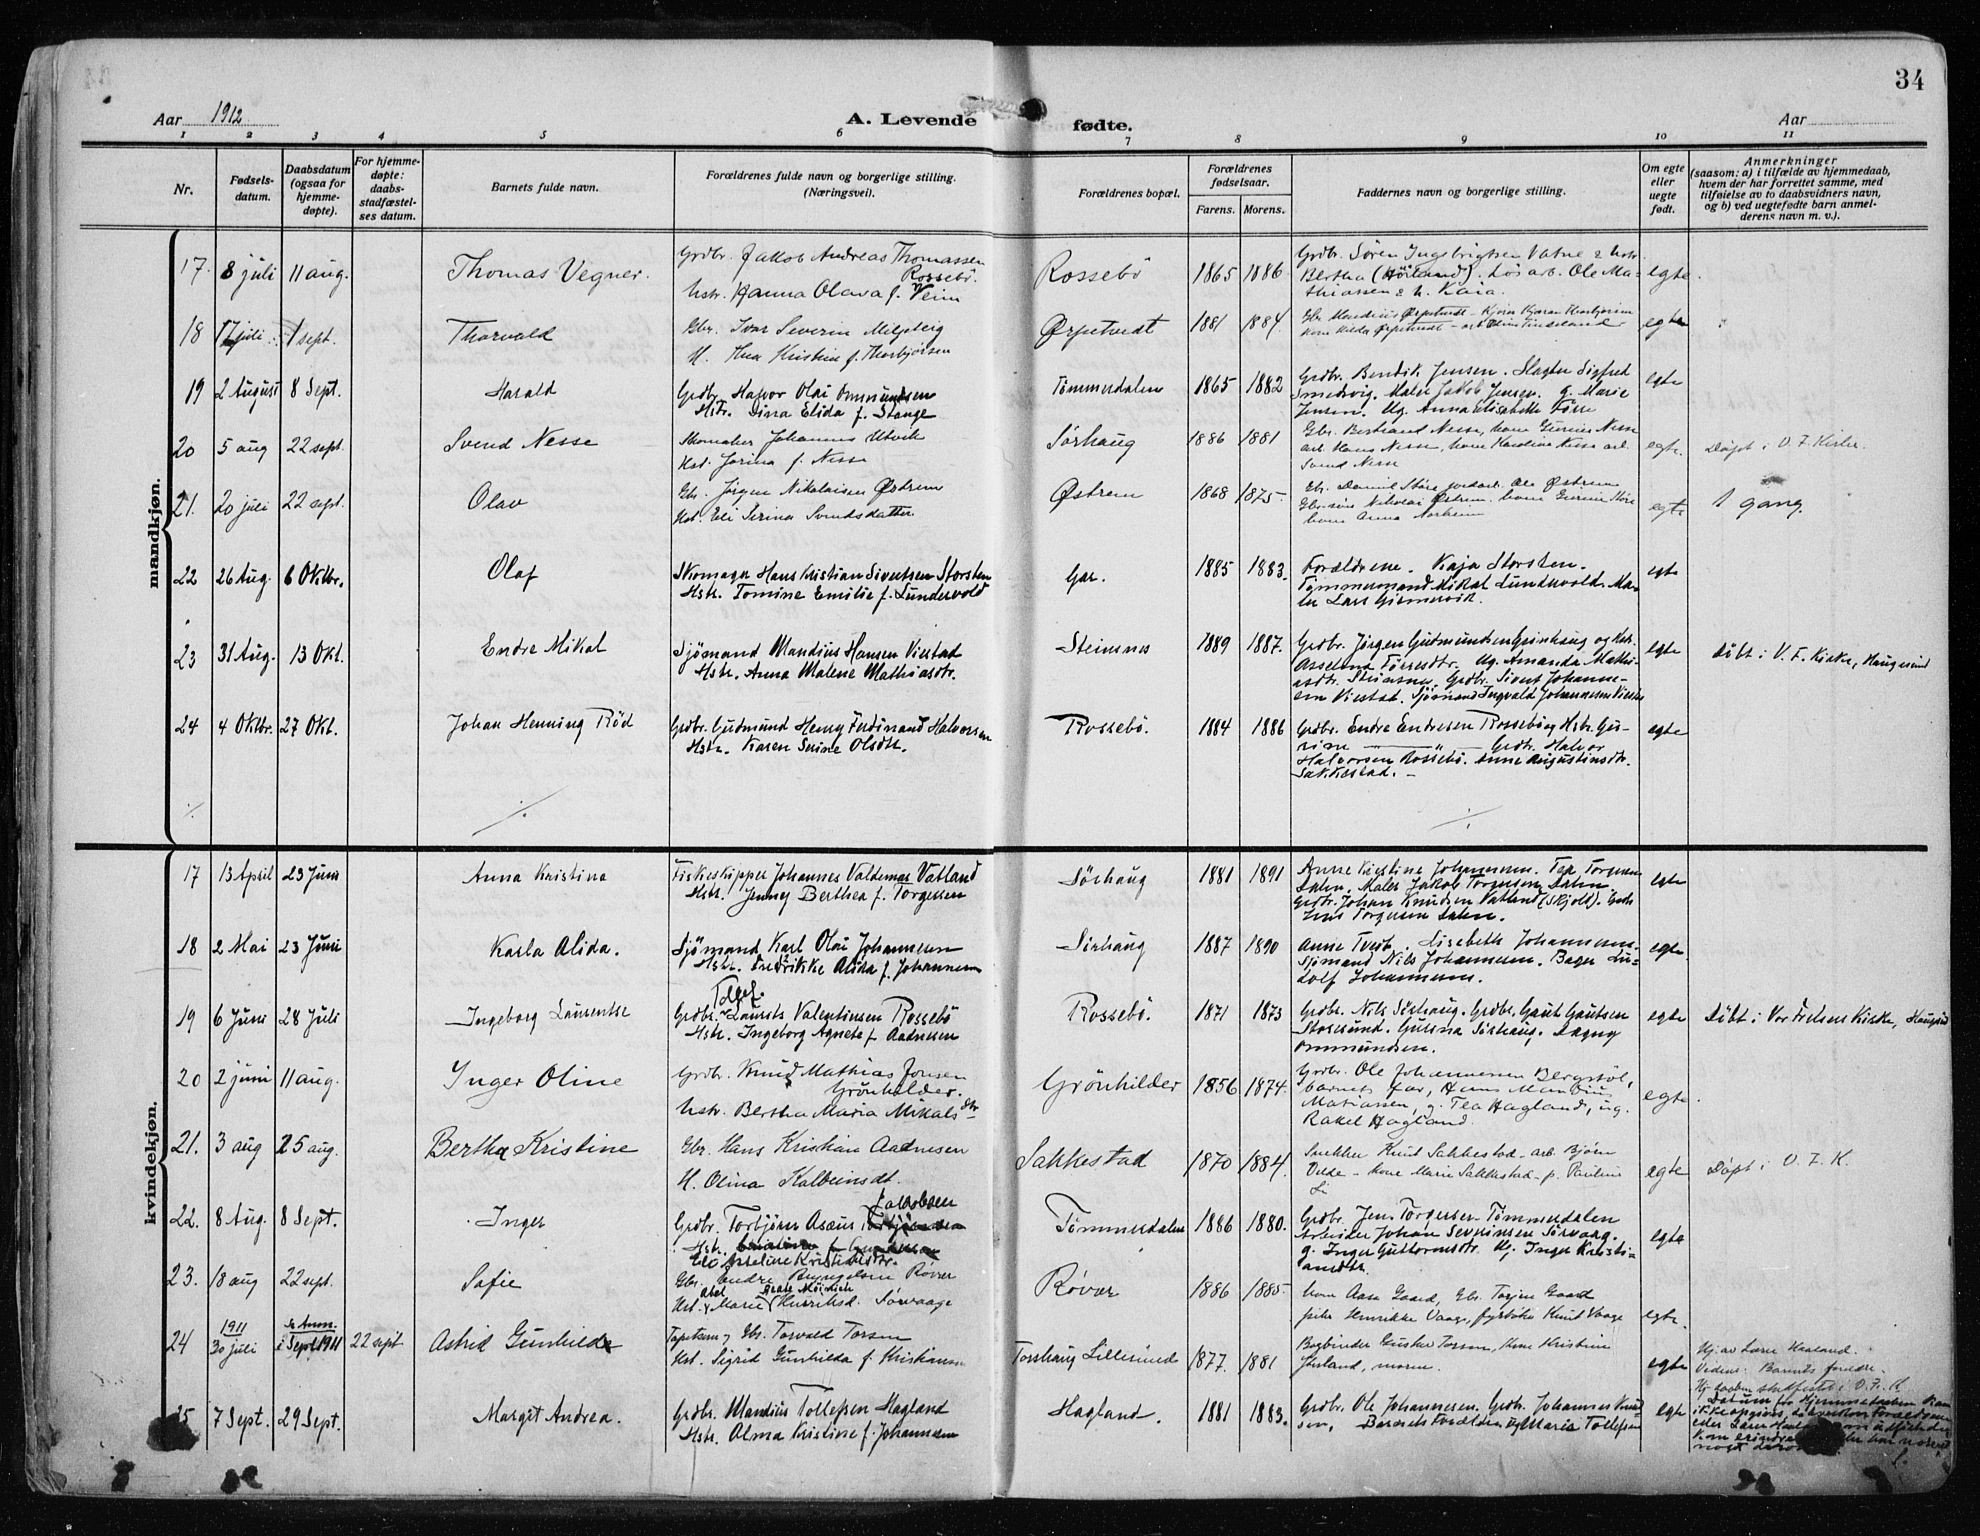 34
Aar 1912
A. Levende fødte.
Aar
1 2 3 4 5 6 7 8 9 10 11
Nr.
Fødsels-
datum.
Daabsdatum
(ogsaa for
hjemme-
døpte).
For hjemme-
døpte:
daabs-
stadfæstel-
ses datum.
Barnets fulde navn.
Forældrenes fulde navn og borgerlige stilling.
(Næringsvei).
Forældrenes bopæl.
Forældrenes
fødselsaar.
Farens. Morens.
Faddernes navn og borgerlige stilling.
Om egte
eller
uegte
født.
Anmerkninger
(saasom: a) i tilfælde av hjemmedaab,
hvem der har forrettet samme, med
tilføielse av to daabsvidners navn,
og b) ved uegtefødte barn anmel-
derens navn m. v.).
mandkjøn.
17. 8 juli 11 aug. Thomas Vegner.
Grdbr. Jakob Andreas Thomassen
Rossebö.
Hstr. Hanna Olava f. Veim
Rossebö 1865 1886
Grdbr. Sören Ingebrigtsen Vatne & hstr.
Bertha (Höiland). Lösarb. Ole Ma-
thiassen & h. Kaia.
egte.
18 17 juli 1 sept. Thorvald
Gbr. Ivar Severin Miljeteig
H. Kristine f. Thorbjörsen
Ørpetvedt 1881 1884.
egte
19 2 August 8 Sept. Harald
Grdbr. Halvor Olai Ommundsen
Hstr. Dina Elida f. Stange
Tömmerdalen 1865 1882
Grdbr. Bendik Jensen. Slagter Sigfred
Smedsvig. Maler Jakob Jensen. g. Marie
Jensen. Ug. Anna Elisabeth
egte
20 5 aug 22 sept. Svend Nesse
Skomaker Johannes Utvik
Hst. Jorina f. Nesse
Sörhaug 1886 1881
Gbr. Bertrand Nesse, kone Gurine Nesse
arb. Hans Nesse, kone Karoline Nesse arb.
Svend Nesse
egte. Døpt i V. F. Kirke.
21. 20 juli 22 sept. Olav
Gbr. Jörgen Nikolaisen Østrem
Hst. Eli Serina Svendsdatter
Østrem 1868 1875.
Gbr. Daniel Støre jordarb. Ole Østrem
Gbr.søn Nikolai Østrem, kone Gurine Støre
kone Anna Norheim
egte 1 gang.
22 26 Aug. 6 Oktbr. Olaf
Skomager Hans Kristian Sivertsen Storsten
Hstr. Tomine Emilie f. Lundervold
Gar. 1885 1883.
Forældrene. Kaja Storsten.
Tømmermand Mikal Lundervold. Ma-
ler Lars
egte
23 31 Aug. 13 Okt. Endre Mikal
Sjömand Mandius Hansen Viestad
Hstr. Anna Malene Mathiasdtr.
Steinsnes 1889 1887.
Grdbr. Jörgen Gudmundsen Grinhaug og Hst.
Asseline Torresdtr. Ug. Amanda Mathi-
asdtr. Steinsnes. Grdbr. Sivert Johanne-
sen Viestad. Sjömand Ingvald Johannesen Viestad
egte Döbt i V. F. Kirke, Haugesund
24 4 Oktbr. 27 Okt. Johan Henning Röd
Grdbr. Gudmund Henry Ferdinand Halvorsen
Hstr. Karen Serine Olsdtr.
Rossebö. 1884 1886
Grdbr. Endre Endresen Rossebö og Hstr. Gu-
rine — " — Grdbr. Halvor
Halvorsen Rossebö. Anne Augustinsdtr.
Sakkestad. –
egte
kvindekjøn.
17 13 April 23 Juni Anna Kristina
Fiskeskipper Johannes Valdemar Vatland
Hstr. Jenny Berthea f. Torgersen
Sörhaug 1881 1891
Anne Kirstine Johannesen. Tea Torgersen
Dalen. Maler Jakob Torgersen Dalen.
Grdbr. Johan Knudsen Vatland (Skjold). Grdb.
Jens Torgersen Dalen.
egte
18 2 Mai 23 Juni Karla Alida.
Sjömand Karl Olai Johannesen
Hstr. Fredrikke Alida f. Johannesen
Sörhaug 1887 1890
Anne Tveit. Lisebeth Johannesen.
Sjömand Nils Johannesen. Bager Lu-
dolf Johannesen.
egte.
19 6 Juni 28 Juli Ingeborg Laurentse
Tollef.
Grdbr. Laurits Valentinsen Rossebö
Hstr. Ingeborg Agnete f. Aadnesen
Rossebö. 1871 1873
Grdbr. Nils Sörhaug. Grdbr. Gaut Gautsen
Storesund. Gurina Sörhaug. Dagny
Ommundsen.
egte Döbt i Vor Frelsers Kirke, Haugesd
20 2 juni 11 aug. Inger Oline
Grdbr. Knud Mathias Jonsen
Grönhilder.
Hstr. Bertha Maria Mikalsdtr
Grönhilder 1856 1874.
Grdbr. Ole Johannessen Bergstöl,
barnets far, Hans Mandius
Matiassen, g. Tea Hagland, ug.
Rakel Hagland.
egte.
21. 3 aug 25 aug. Bertha Kristine
Gbr. Hans Kristian Aadnesen
H. Olina Kolbeinsdt.
Sakkestad 1870 1884.
Snekker Knut Sakkestad – arb. Bjørn
Velde – kone Marie Sakkestad – p. Pauline
Li
egte Döpt i V. F. K.
22. 8 Aug. 8 Sept. Inger
Jakobsen
Grdbr. Torbjörn Asæus
Hstr.
Kristiansdtr.
Tømmerdalen 1886 1880.
Grdbr. Jens Torgersen Tømmerdalen
Arbeider Johan Severinsen Sörvaag.
g. Inger Guttormsdtr. Ug. Inger Kristi-
ansdtr.
egte
23. 18 aug 22 sept. Sofie
Gbr. Andre Bryngelsen Røvær
Hst. Marie Henriksd. Sørvaage
Røvær 1886 1885.
kone Aase Gaard, Gbr. Torjer Gaard
pike Henrikke Vaage, fyrbøter Knut Vaage
egte.
24 1911 30 juli se Anm. i Sept 1911 22 sept Astrid Gunhilde
Tapetsen g Gbr. Torvald Torsen
Hst. Sigrid Gunhilda f. Kristiansen
Torshaug Lillesund 1877. 1881
Bogbinder Gustav Torsen, kone Kristine
morm.
egte
Hj. av Lærer Haaland.
Vidner: Barnets forældre.
Hj.daaben stadfæstet i V. F. K.
Datum for Hjemmedaaben kan
ikke opgives
25 7 Sept. 29 Sept. Margit Andrea.
Grdbr. Mandius Tollefsen Hagland
Hstr. Alma Kristine f. Johannesen
Hagland. 1881 1883.
Grdbr. Ole Johannesen. Grdbr. Johannes Knud-
sen, Barnets Forældre, Ug Maria Tollefsen
egte